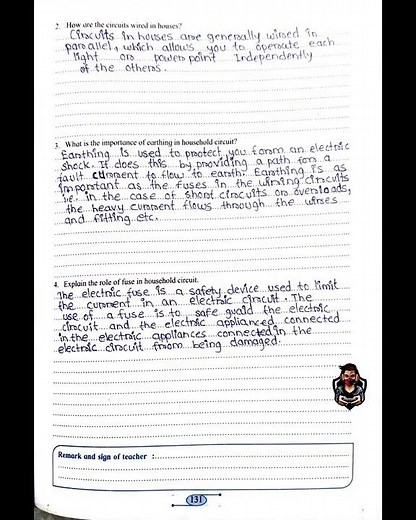 2. How are the circuits wired in houses?
Circuits in houses are generally wired in
parallel, which allows you to operate each
light or power point Independently
of the others.
3. What is the importance of earthing in household circuit?
Earthing is used to protect you form an electric
shock. It does this by providing a path for a
fault current to flow to earth. Earthing is as
important as the fuses in the wiring circuits
i.e. in the case of short circuits or overloads,
the heavy current flows through the wires
and fitting etc.
4. Explain the role of fuse in household circuit.
The electric fuse is a safety device used to limit
the current in an electric circuit. The
use of a fuse is to safe guaid the electric
circuit and the electric applianced connected
in the electric appliances connected in the
electric circuit from being damaged.
Remark and sign of teacher :
131